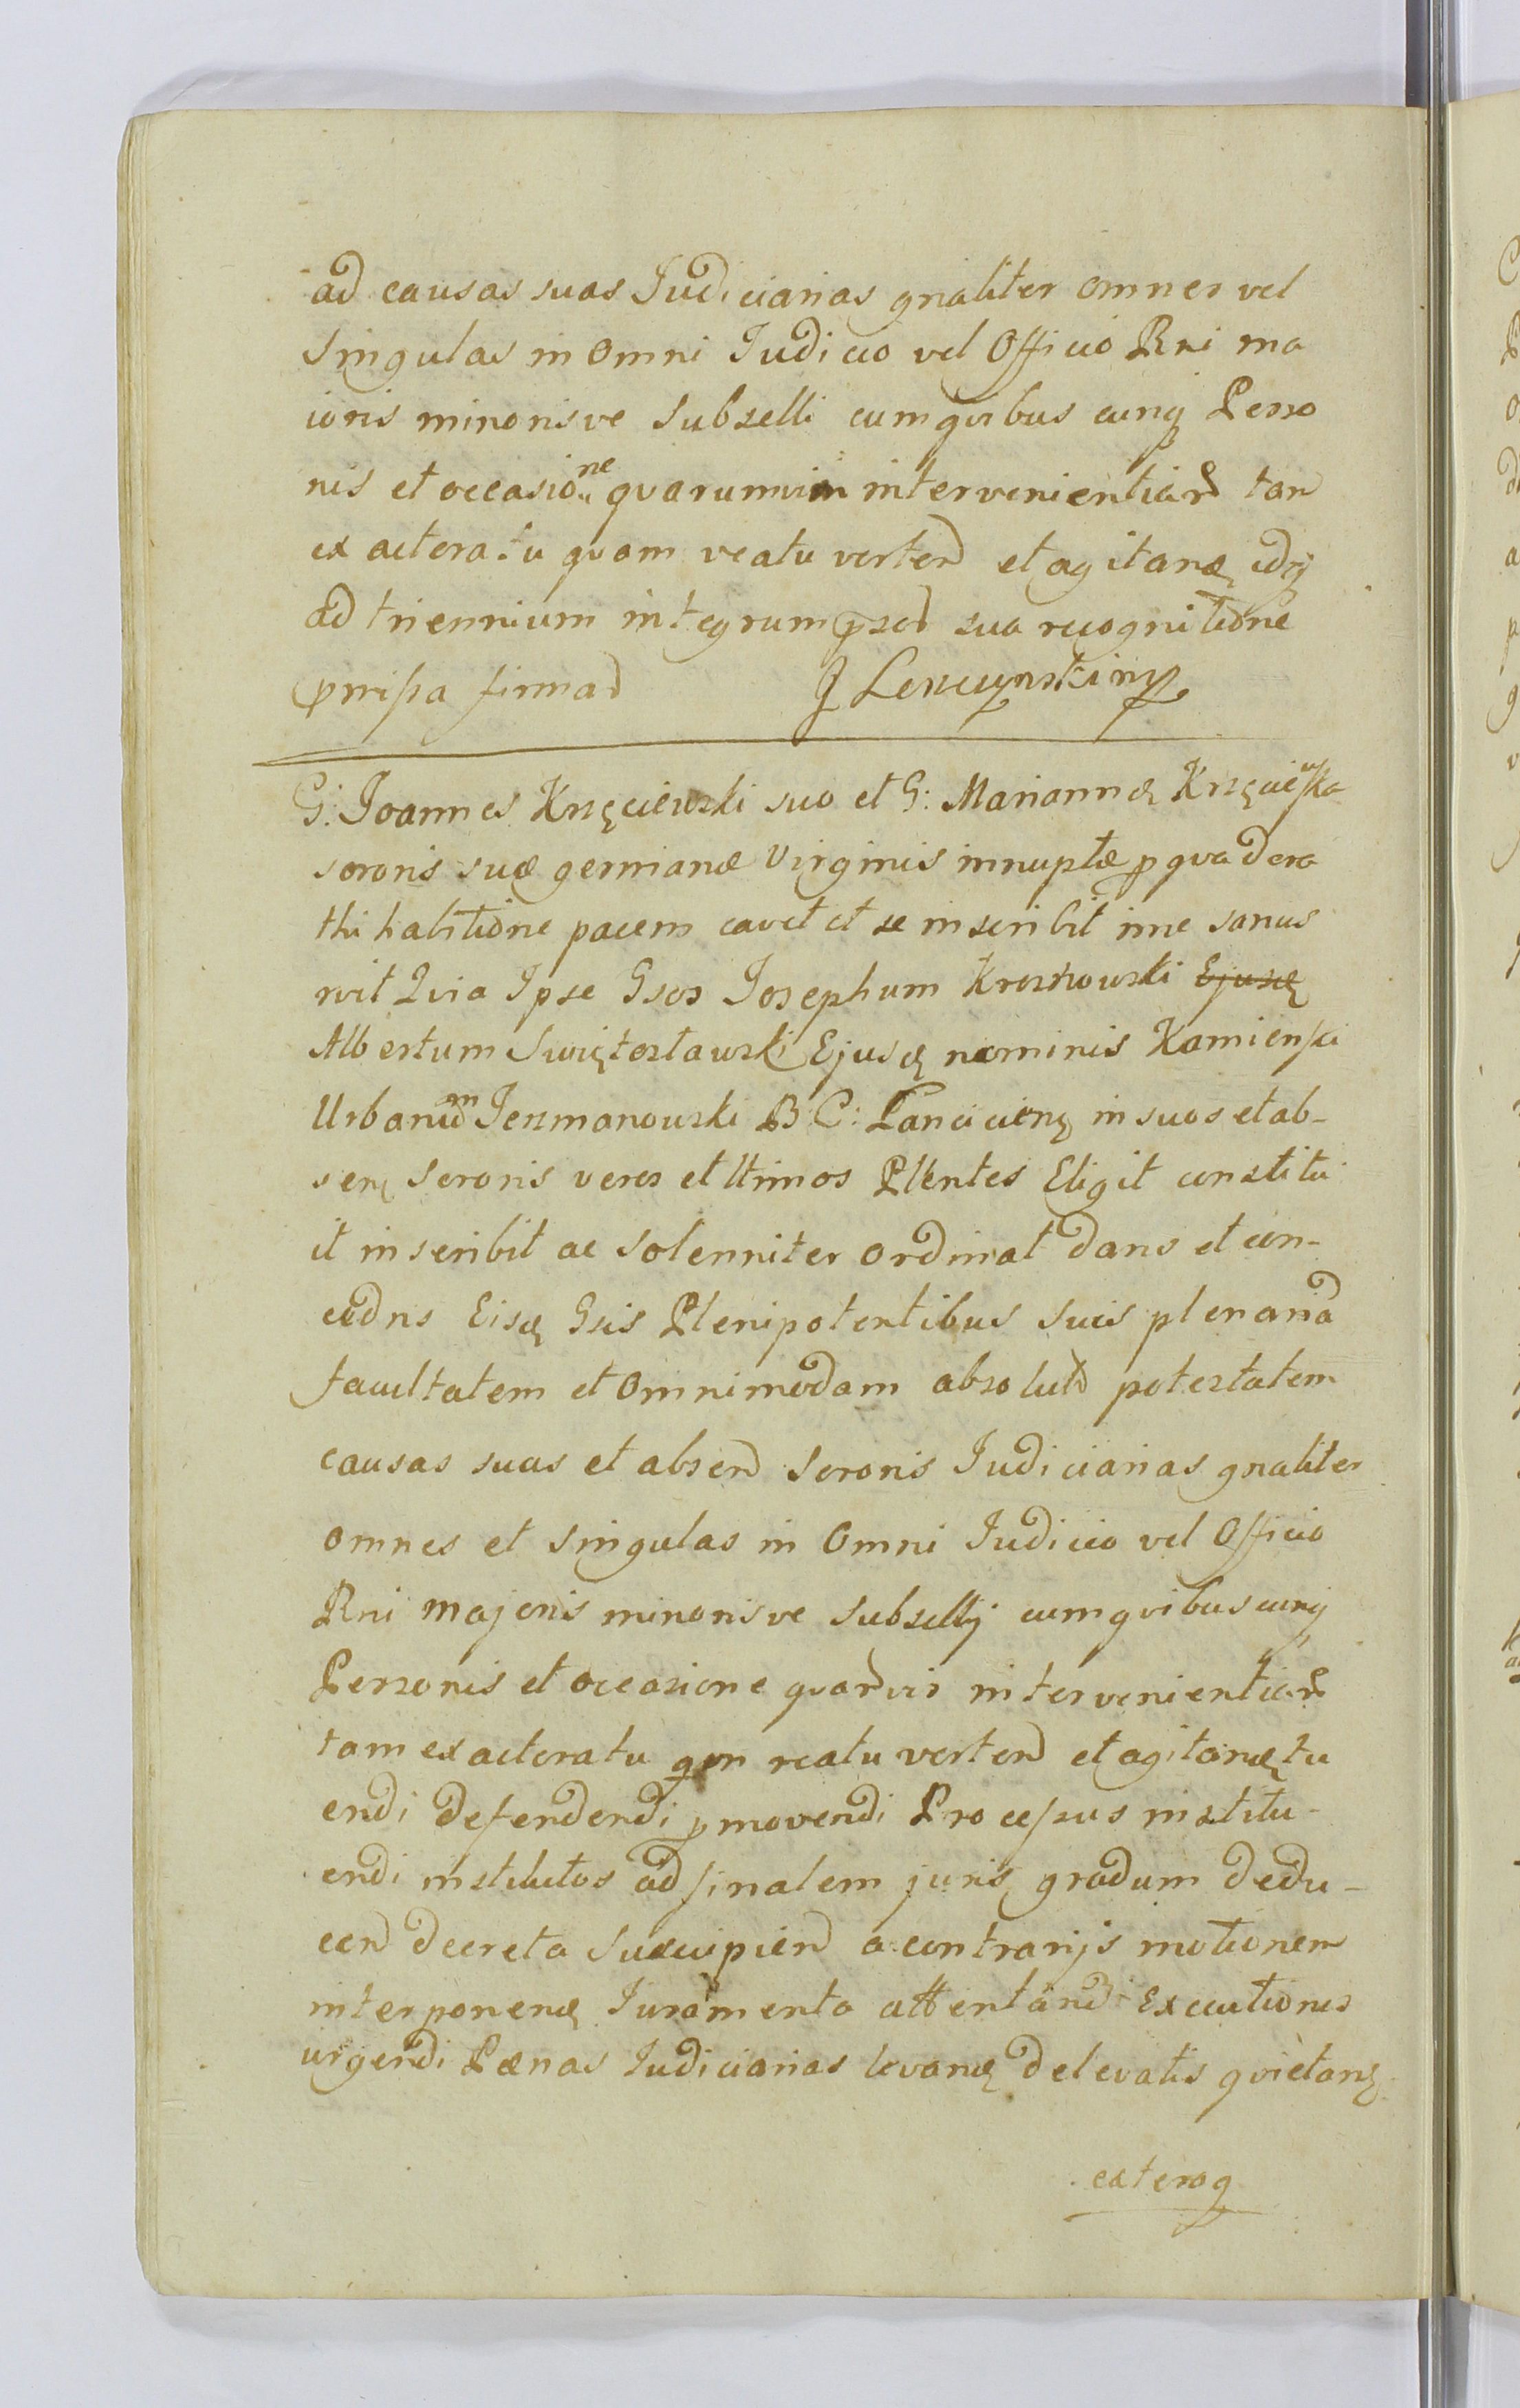 ad causas suas Iudiciarias gnaliter omnes vel
Singulas in Omni Iudicio vel Officio Rni ma
ioris minorisve Subselli cum qvibus cunq Perso
nis et occasione qvarumvis intervenientiar tan
ex actoratu qvam reatu verten et agitan idq
ad triennium integrum sua recognitione
firmad J Leszczynski mp
G: Joannes Krzęciewski suo et G: Mariannæ Krzęciewska
sororis suæ germanæ Virginis innuptæ p qva de ra
thi habitione pacem cavet et se inscribit ime sanus
rvit Qvia Ipse Gsos Josephum Krosnowski Ejusd
Albertum Swiętosławski Ejusd nominis Kamienski
Urbanum Jerzmanowski B: C: Lancicien in suos et ab-
sen Sororis veros et ltimos Plentes Eligit constitu
it inscribit ac Solenniter Ordinat dans et con-
cedns Eisd Gsis Plenipotentibus Suis plenariã
facultatem et Omnimodam absolut potestatem
causas suas et absen Sororis Iudiciarias gnaliter
omnes et Singulas in Omni Iudicio vel Officio
Rni majoris minorisve Subsellij cum qvibuscunq
Personis et occasione qvarvis intervenientiar
tam ex actoratu qvn reatu verten et agitan tu
endi defendendi pmovendi Processus institu-
endi institutos ad finalem juris gradum dedu-
cen decreta Suscipien a contrarijs motionem
interponen Juramenta attentand Executiones
urgendi Pænas Iudiciarias levand de levatis qvietan
cæteraq